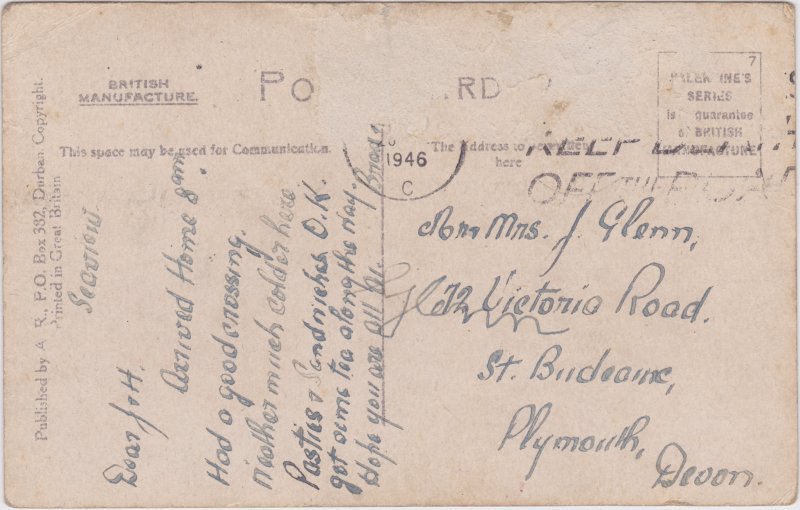 BRITISH
MANUFACTURE.
PO RD
7
VALENTINE'S
SERIES
is guarantee
of BRITISH
MANUFACTURE
This space may be used for Communication.
The Address to be written
here
1946
C
KEEP
OFF THE ROAD
Published by A. R., P.O. Box 332, Durban. Copyright.
Printed in Great Britain
Seaview
Dear J & H.
Arrived Home 8am.
Had a good crossing.
Weather much colder here
Pasties & Sandwiches O.K.
got some tea along the way.
Hope you are all
Mr & Mrs. J. Glenn,
72 Victoria Road.
St. Budeaux,
Plymouth,
Devon.